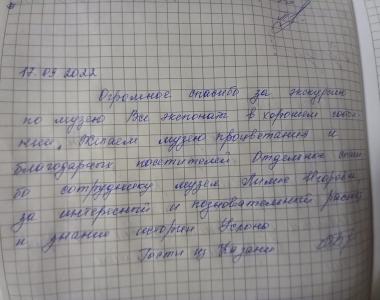 17.09.2022
Огромное спасибо за экскурсию
по музею Все экспонаты в хорошем состо-
янии. Желаем музею процветания и
благодарных посетителей. Отдельное спаси
бо сотруднику музея
за интересный и познавательный рассказ
и знание истории
Гости из Казани